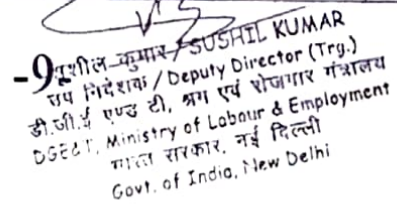 -9
सुशील कुमार / SUSHIL KUMAR
उप निदेशक / Deputy Director (Trg.)
डी.जी.ई एण्ड टी, श्रम एवं रोजगार मंत्रालय
DGE&T, Ministry of Labour & Employment
भारत सरकार, नई दिल्ली
Govt. of India, New Delhi